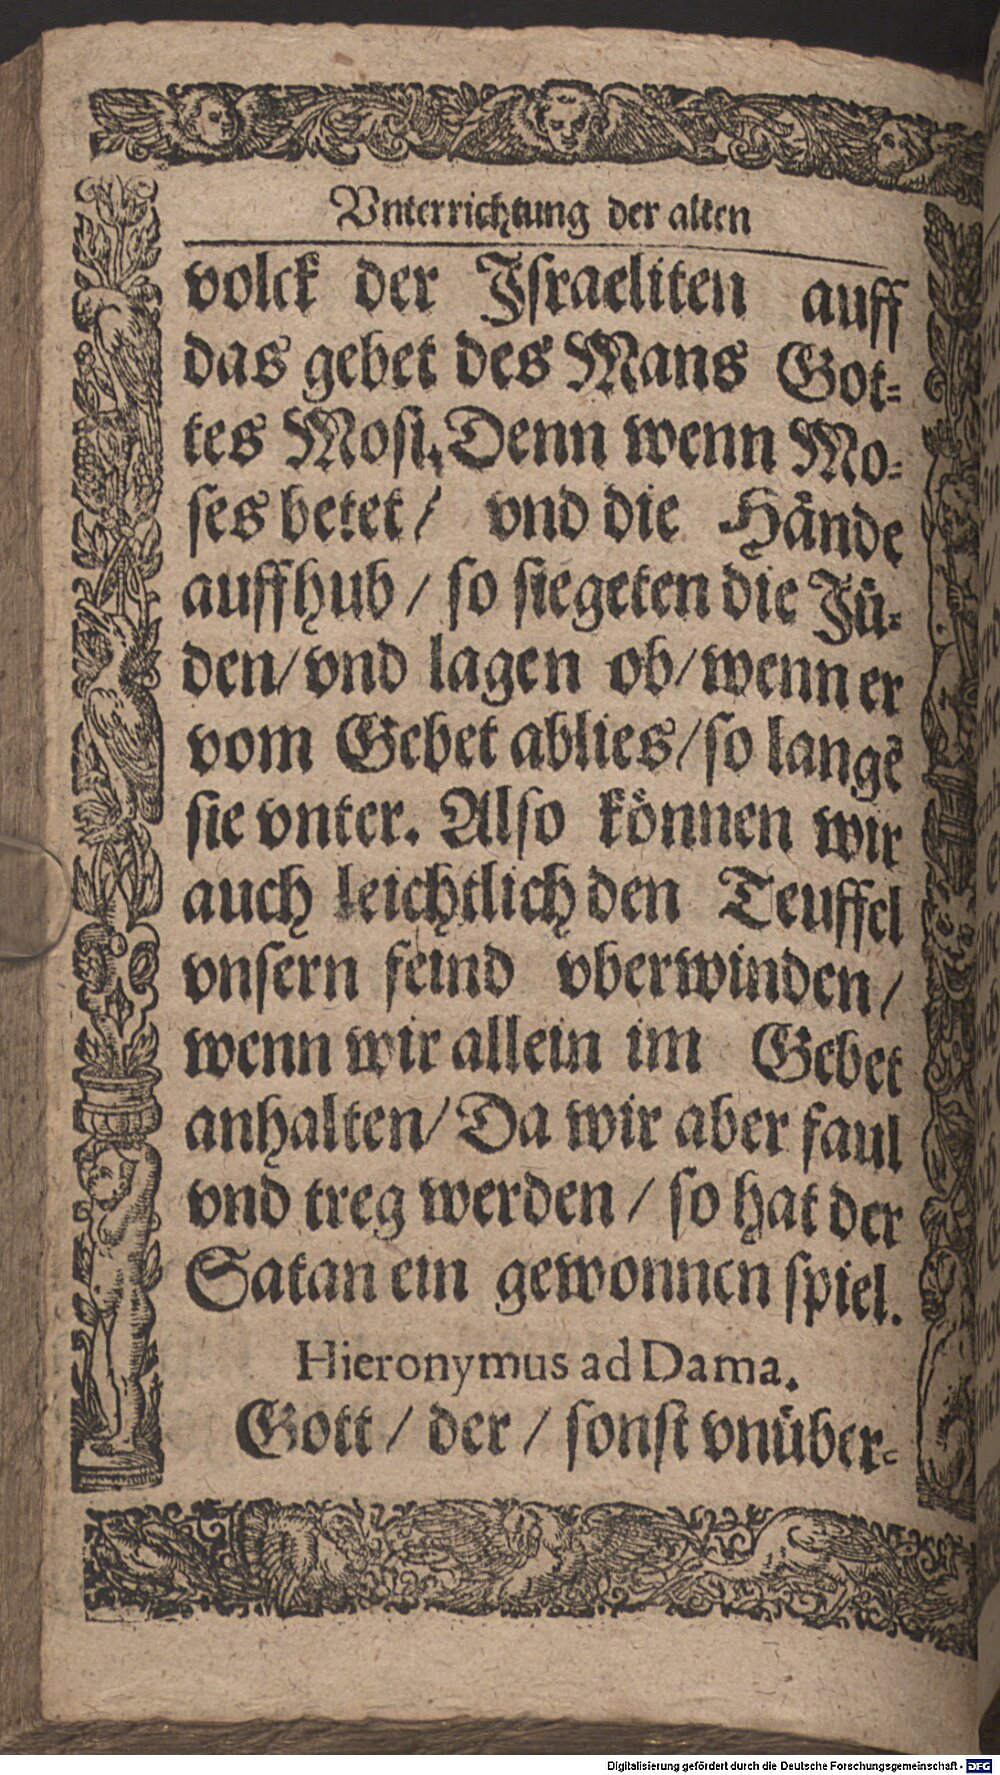 Vnterrichtung der alten
volck der Israeliten auff
das gebet des Mans Got-
tes Mosi. Denn wenn Mo-
ses betet / vnd die Hände
auffhub / so siegeten die Jü-
den / vnd lagen ob / wenn er
vom Gebet ablies / so langẽ
sie vnter. Also können wir
auch leichtlich den Teuffel
vnsern feind vberwinden /
wenn wir allein im Gebet
anhalten / Da wir aber faul
vnd treg werden / so hat der
Satan ein gewonnen spiel.
Hieronymus ad Dama.
Gott / der / sonst vnüber-
Digitalisierung gefördert durch die Deutsche Forschungsgemeinschaft - DFG